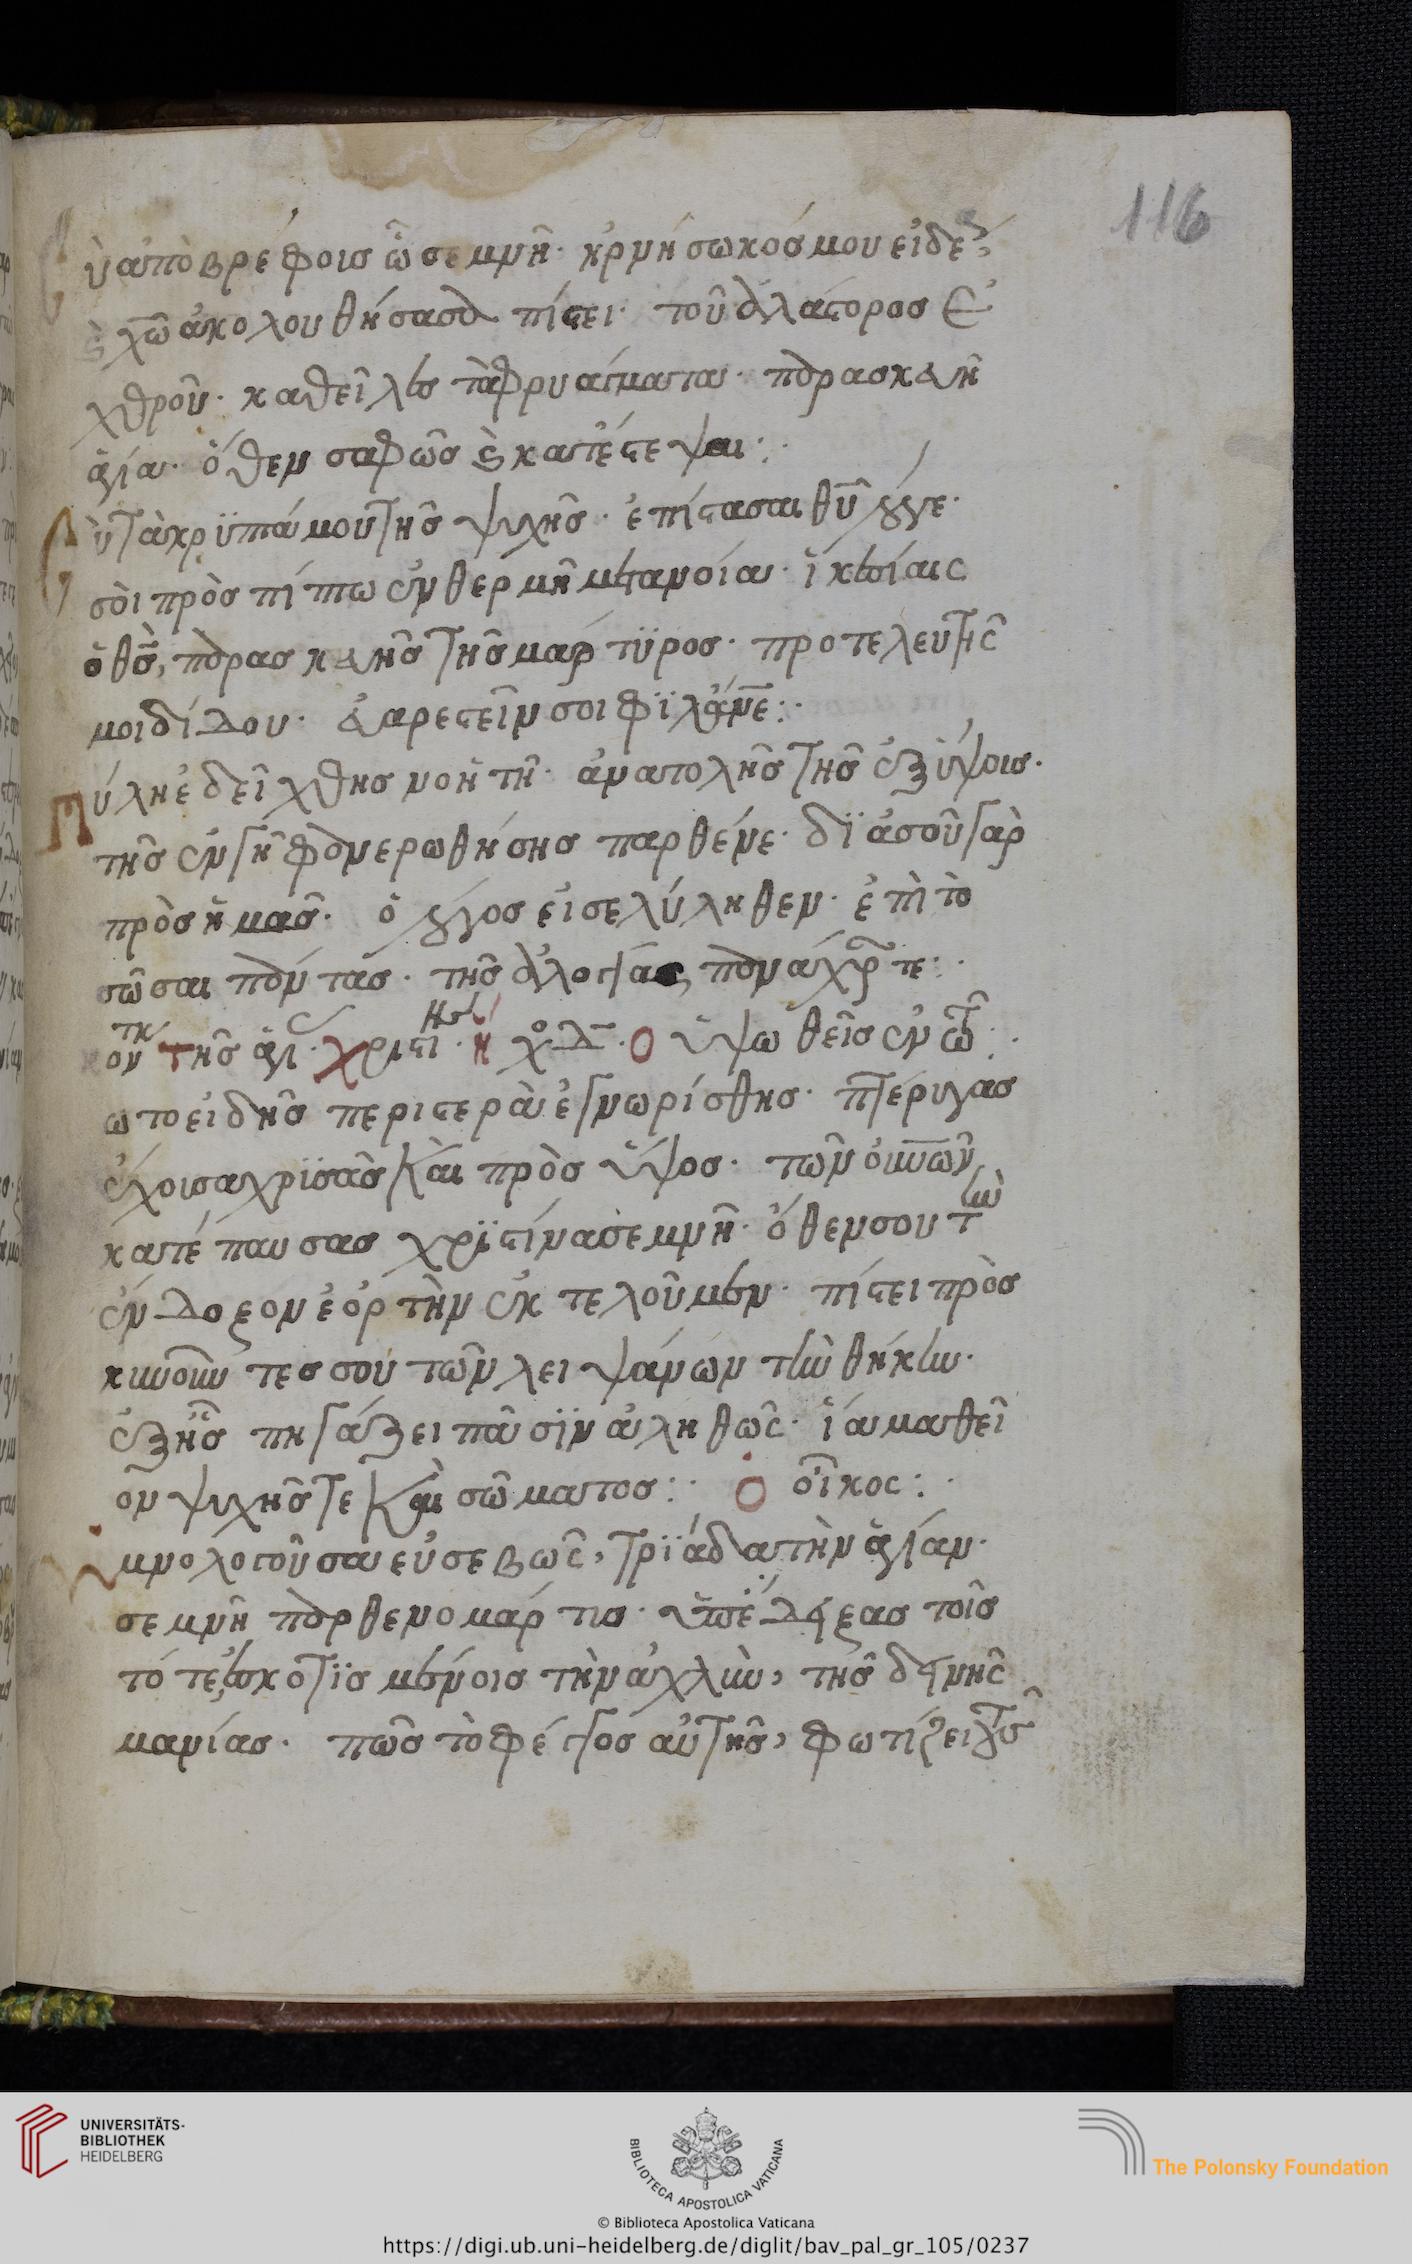 116
ὺ ἀπὸ βρέφοις ὦ σεμνῆ· ἠρνήσω κόσμου εἰδε
χῶ ἀκολουθήσασα πίστει· τοῦ ἀλάστορος ἐ
χθροῦ· καθεῖλες τὰ φρυάγματα· παρασκευῆ
ἁγία· ὅθεν σαφῶς ἐκατέστεψαι:·
ὺ τὰ κρϋπτά μου τῆς ψυχῆς· ἐπίστασαι θῦ λόγε·
σὸι πρὸσπίπτω ἐν θέρμη μετανοία· ἱκεσίαις
ὁ θς, παρασκευῆς τῆς μάρτϋρος· προτελευτῆς
μοι δίδου· εὐαρεστεῖν σοι φϊλάνε:·
ύλη ἐδείχθης νοητὴ· ἀνατολῆς τῆς ἐξ ὕψοις·
τῆς ἐν γῆ φανερωθήσης παρθένε· δϊα σοῦ γὰρ
πρὸς ἡμᾶς· ὁ λόγος εἰσελύληθεν· ἐπὶ τὸ
σῶσαι πάντας· τῆς ἀλογίας πανάχραντε:·
ον τῆς ἁγι· χριστι· ἦχ δ· Ὁ ὑψωθεὶς ἐν τῶ:·
ωτοειδὴς περιστερὰ ἐγνωρίσθης· πτέρυγας
ἔχοισα χρϊσὰς καὶ πρὸς ὕψος· τῶν οὐνῶν
κατέπαυσας χρϊστίνα σεμνῆ· ὅθεν σου τὴν
ἔνδοξον ἐορτὴν ἐκτελοῦμεν· πίστει πρὸς
κυνοῦντες σου τῶν λειψάνων τὴν θήκην·
ἐξ ἧς πηγάζει πᾶσϊν ἀληθῶς· ἰάμα θεῖ
ον ψυχῆς τε καὶ σώματος:· Ὁ οἶκος:·
μνολογοῦσα εὐσεβῶς, τρϊάδα τὴν ἁγίαν·
σεμνὴ παρθενομάρτις· ὑπέδειξας τοῖς
τότε ἐσκοτϊσμένοις τὴν ἀχλὺν, τῆς δεινῆς
μανίας· πῶς τὸ φέγγος αὐτῆς, φωτίζει
UNIVERSITÄTS-
BIBLIOTHEK
HEIDELBERG
BIBLIOTECA APOSTOLICA VATICANA
The Polonsky Foundation
© Biblioteca Apostolica Vaticana
https://digi.ub.uni-heidelberg.de/diglit/bav_pal_gr_105/0237